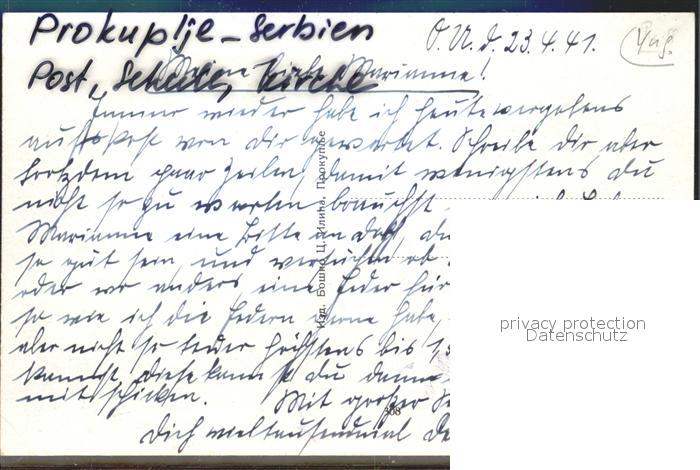 Prokuplje - Serbien
O.U. d. 23.4.41.
Post, Schule, Kirche
Meine liebe Marianne!
Immer wieder habe ich heute vergebens
auf Post von dir gewartet. Schreibe dir aber
trotzdem paar Zeilen, damit wenigstens du
nicht so zu warten brauchst
Marianne eine Bitte an dich, du
so gut sein und versuchen, ob
oder wo anders eine Feder für
so wie ich die Federn gerne habe,
aber nicht so teuer höchstens bis 1,5
kannst, diese kannst du dann
mitschicken. Mit großer
Dich vieltausendmal
Изд. Бошко Ц. Илић, Прокупље
308
privacy protection
Datenschutz